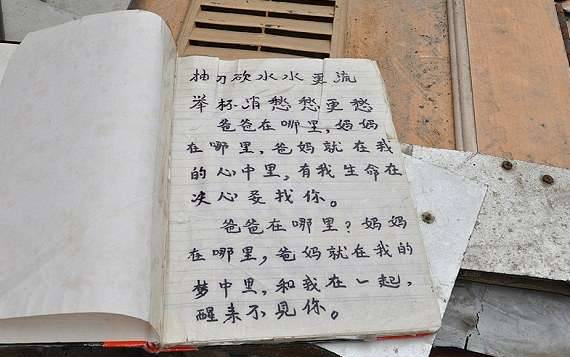 抽刀砍水水更流
举杯消愁愁更愁
爸爸在哪里,妈妈
在哪里,爸妈就在我
的心中里,有我生命在
决心要找你。
爸爸在哪里?妈妈
在哪里,爸妈就在我的
梦中里,和我在一起,
醒来不见你。